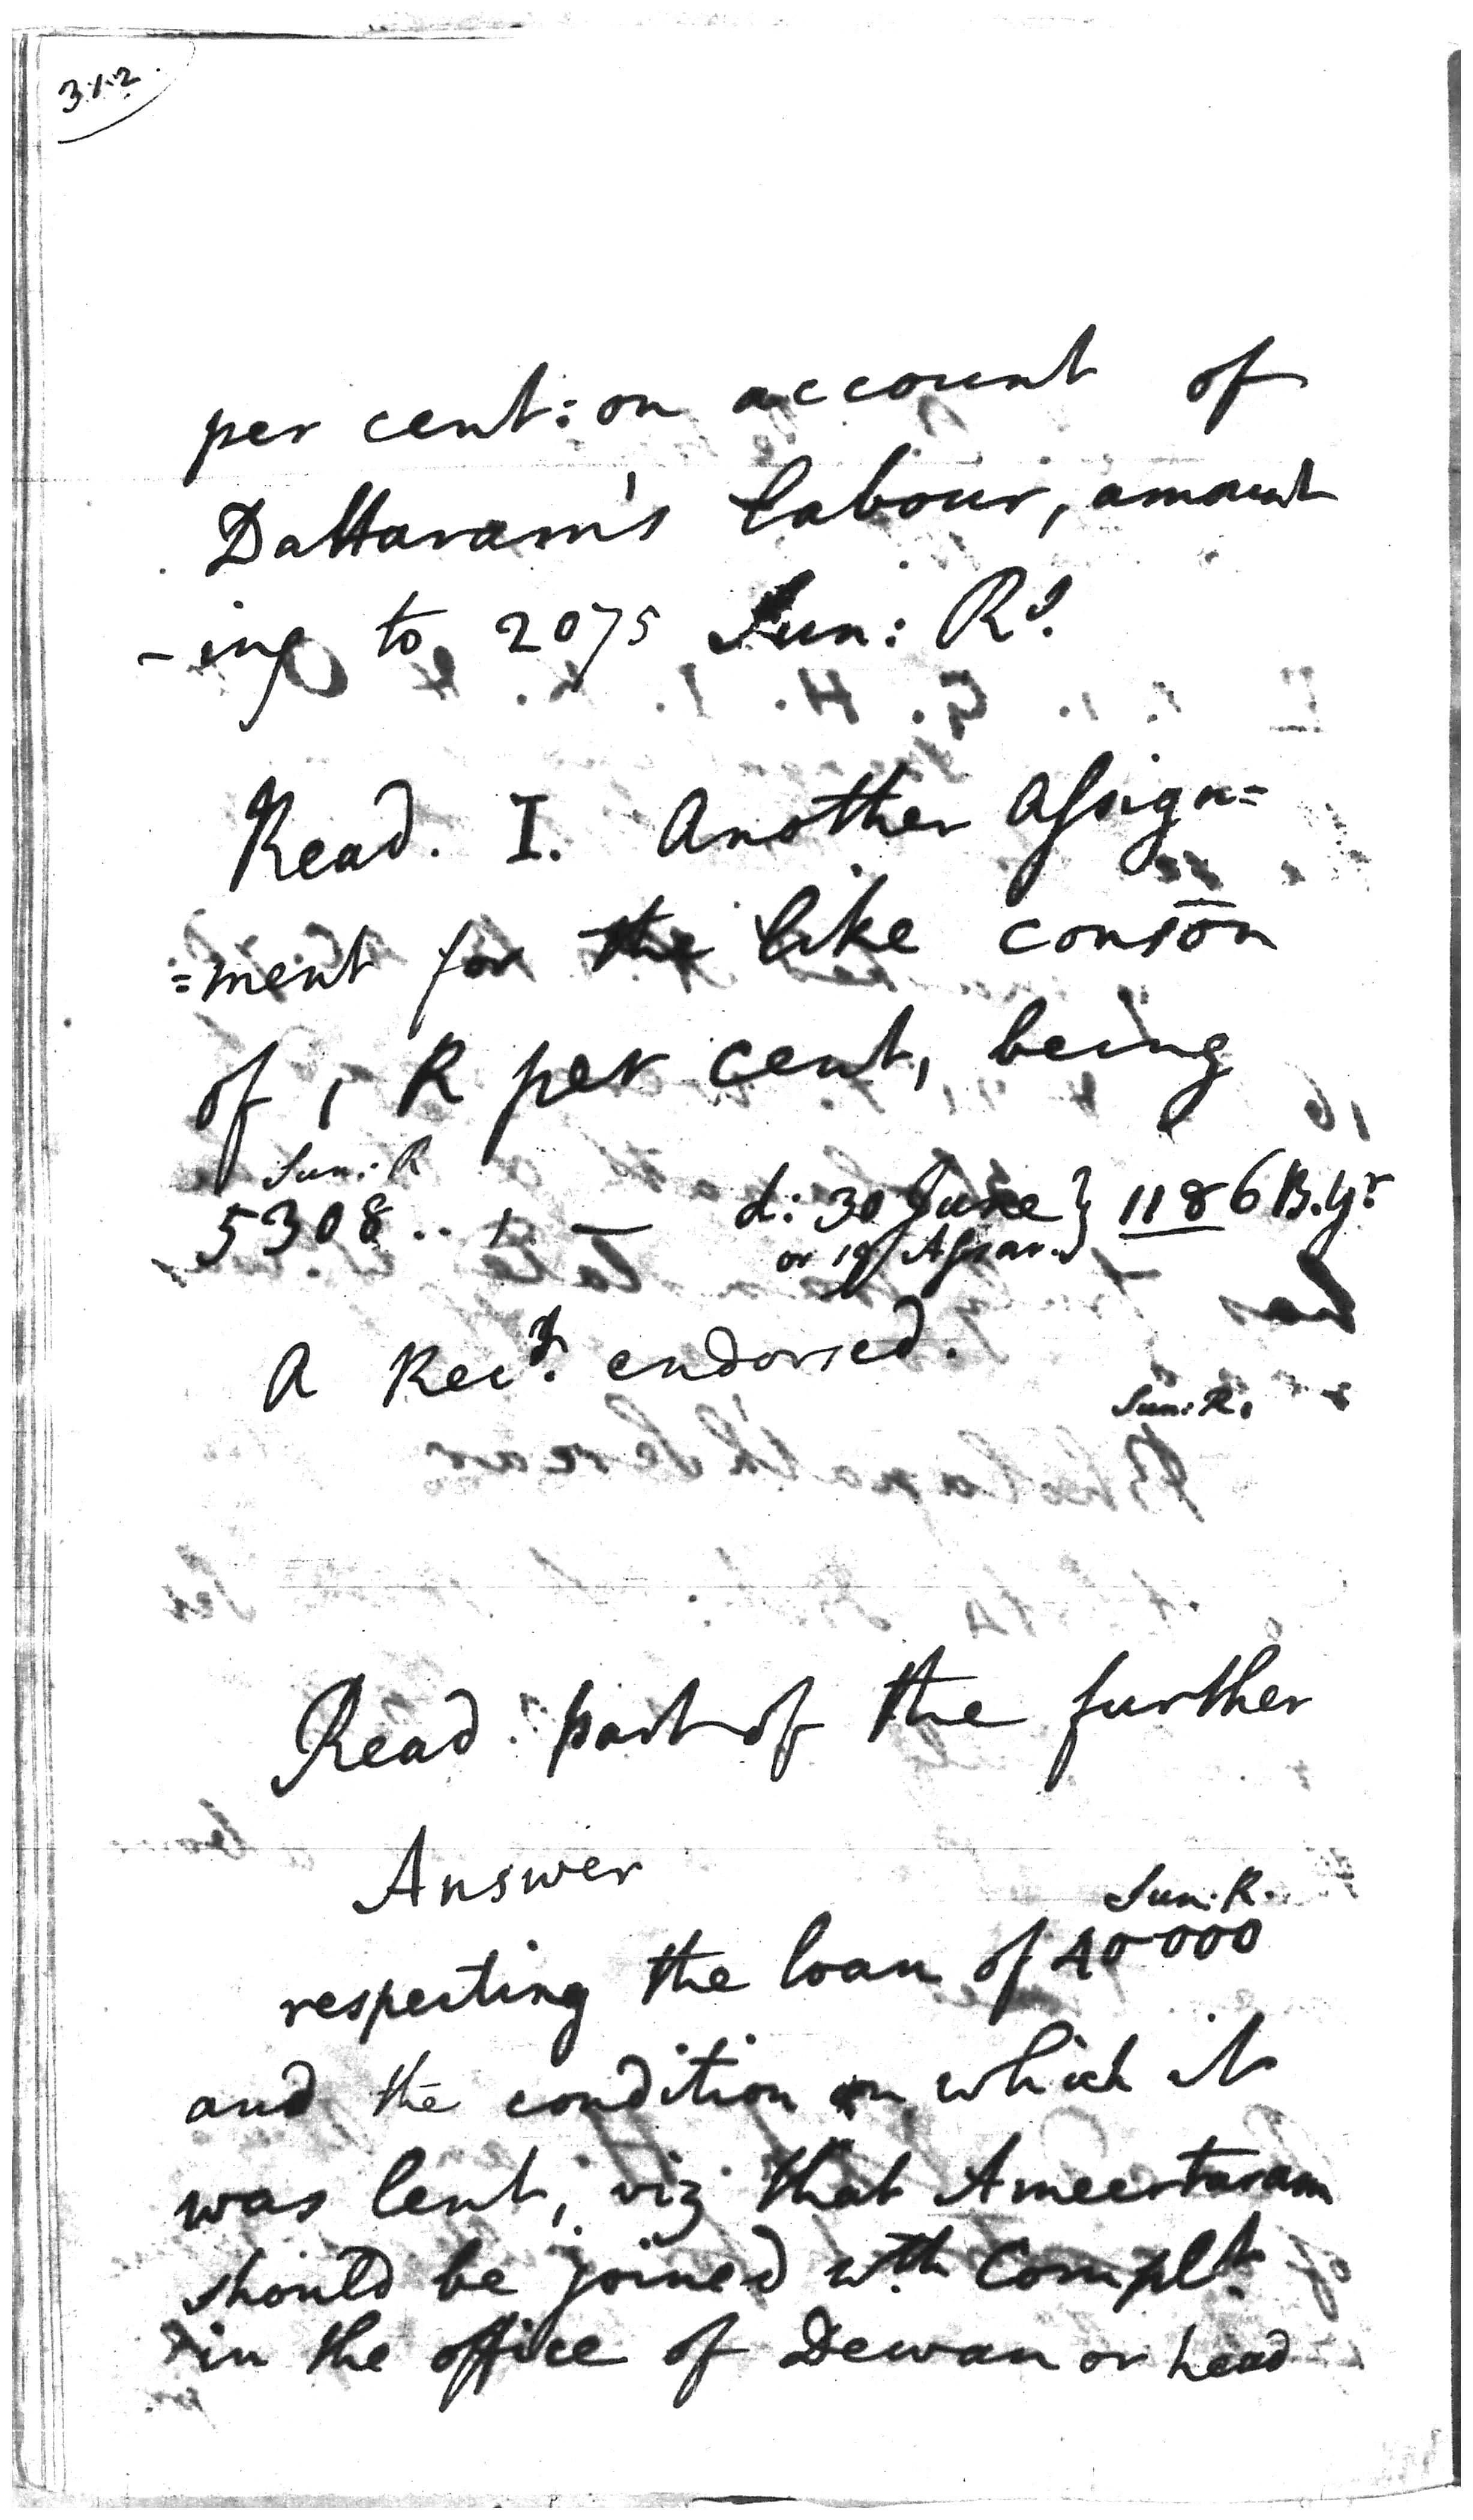 312.
per cent: on account of
Dattaram's labour, amount
-ing to 2075 Sun: Rs.
Read. I. Another assign=
=ment for the like conson
of 1 R per cent, being
Sun: R
5308..1.— d: 30 June } 1186 B.Yr
or 19 Assar.
A Rect. endorsed.
Sun: R.
Read part of the further
Answer
Sun. R.
respecting the loan of 40000
and the condition on which it
was lent, viz that Ameertaram
should be joined wth Complt.
in the office of Dewan or head